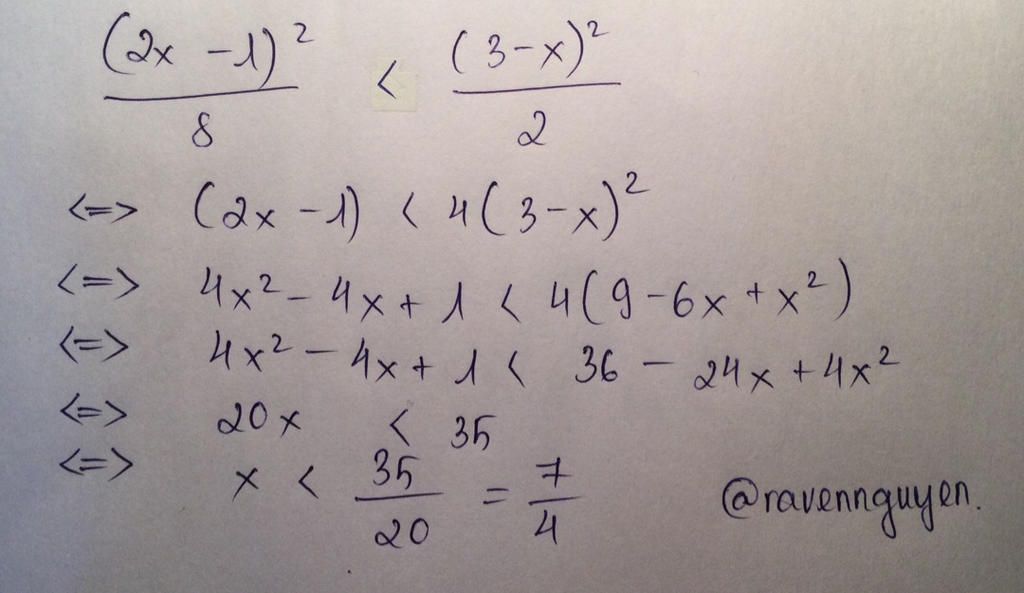 (2x - 1)² / 8 < (3 - x)² / 2
<=> (2x - 1) < 4(3 - x)²
<=> 4x² - 4x + 1 < 4(9 - 6x + x²)
<=> 4x² - 4x + 1 < 36 - 24x + 4x²
<=> 20x < 35
<=> x < 35/20 = 7/4
@ravennguyen.